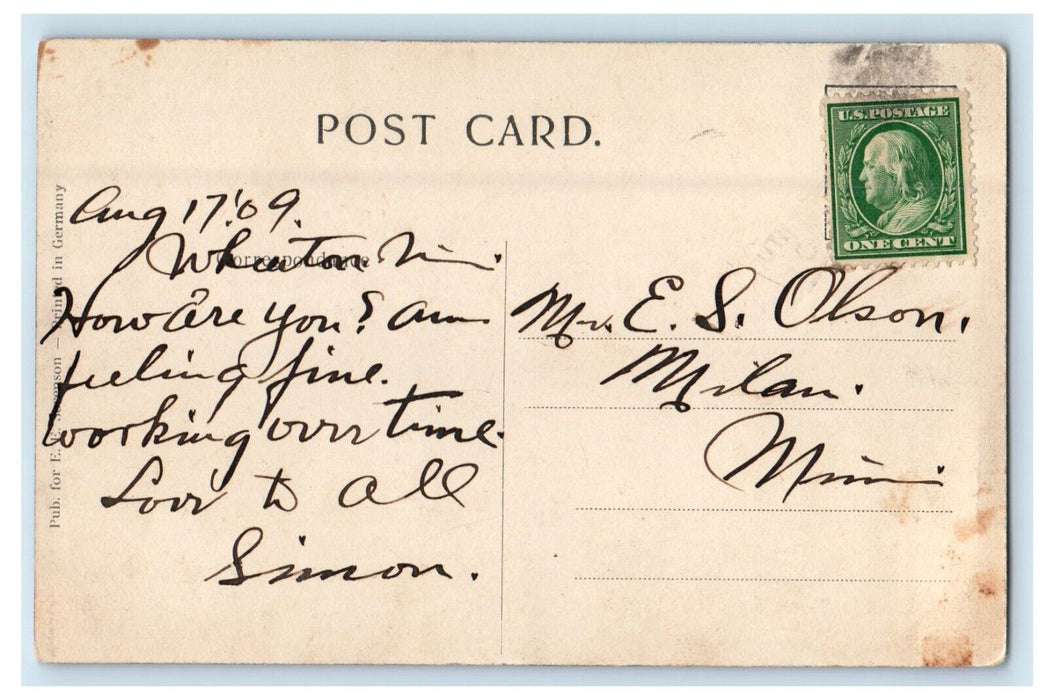 POST CARD.
U.S. POSTAGE
ONE CENT
Aug 17 '09.
Wheaton Minn.
Correspondence
How are you? am
feeling fine.
working over time.
Love to all
Simon.
Mr. E. S. Olson.
Milan.
Minn.
Pub. for E. Sorenson — Printed in Germany